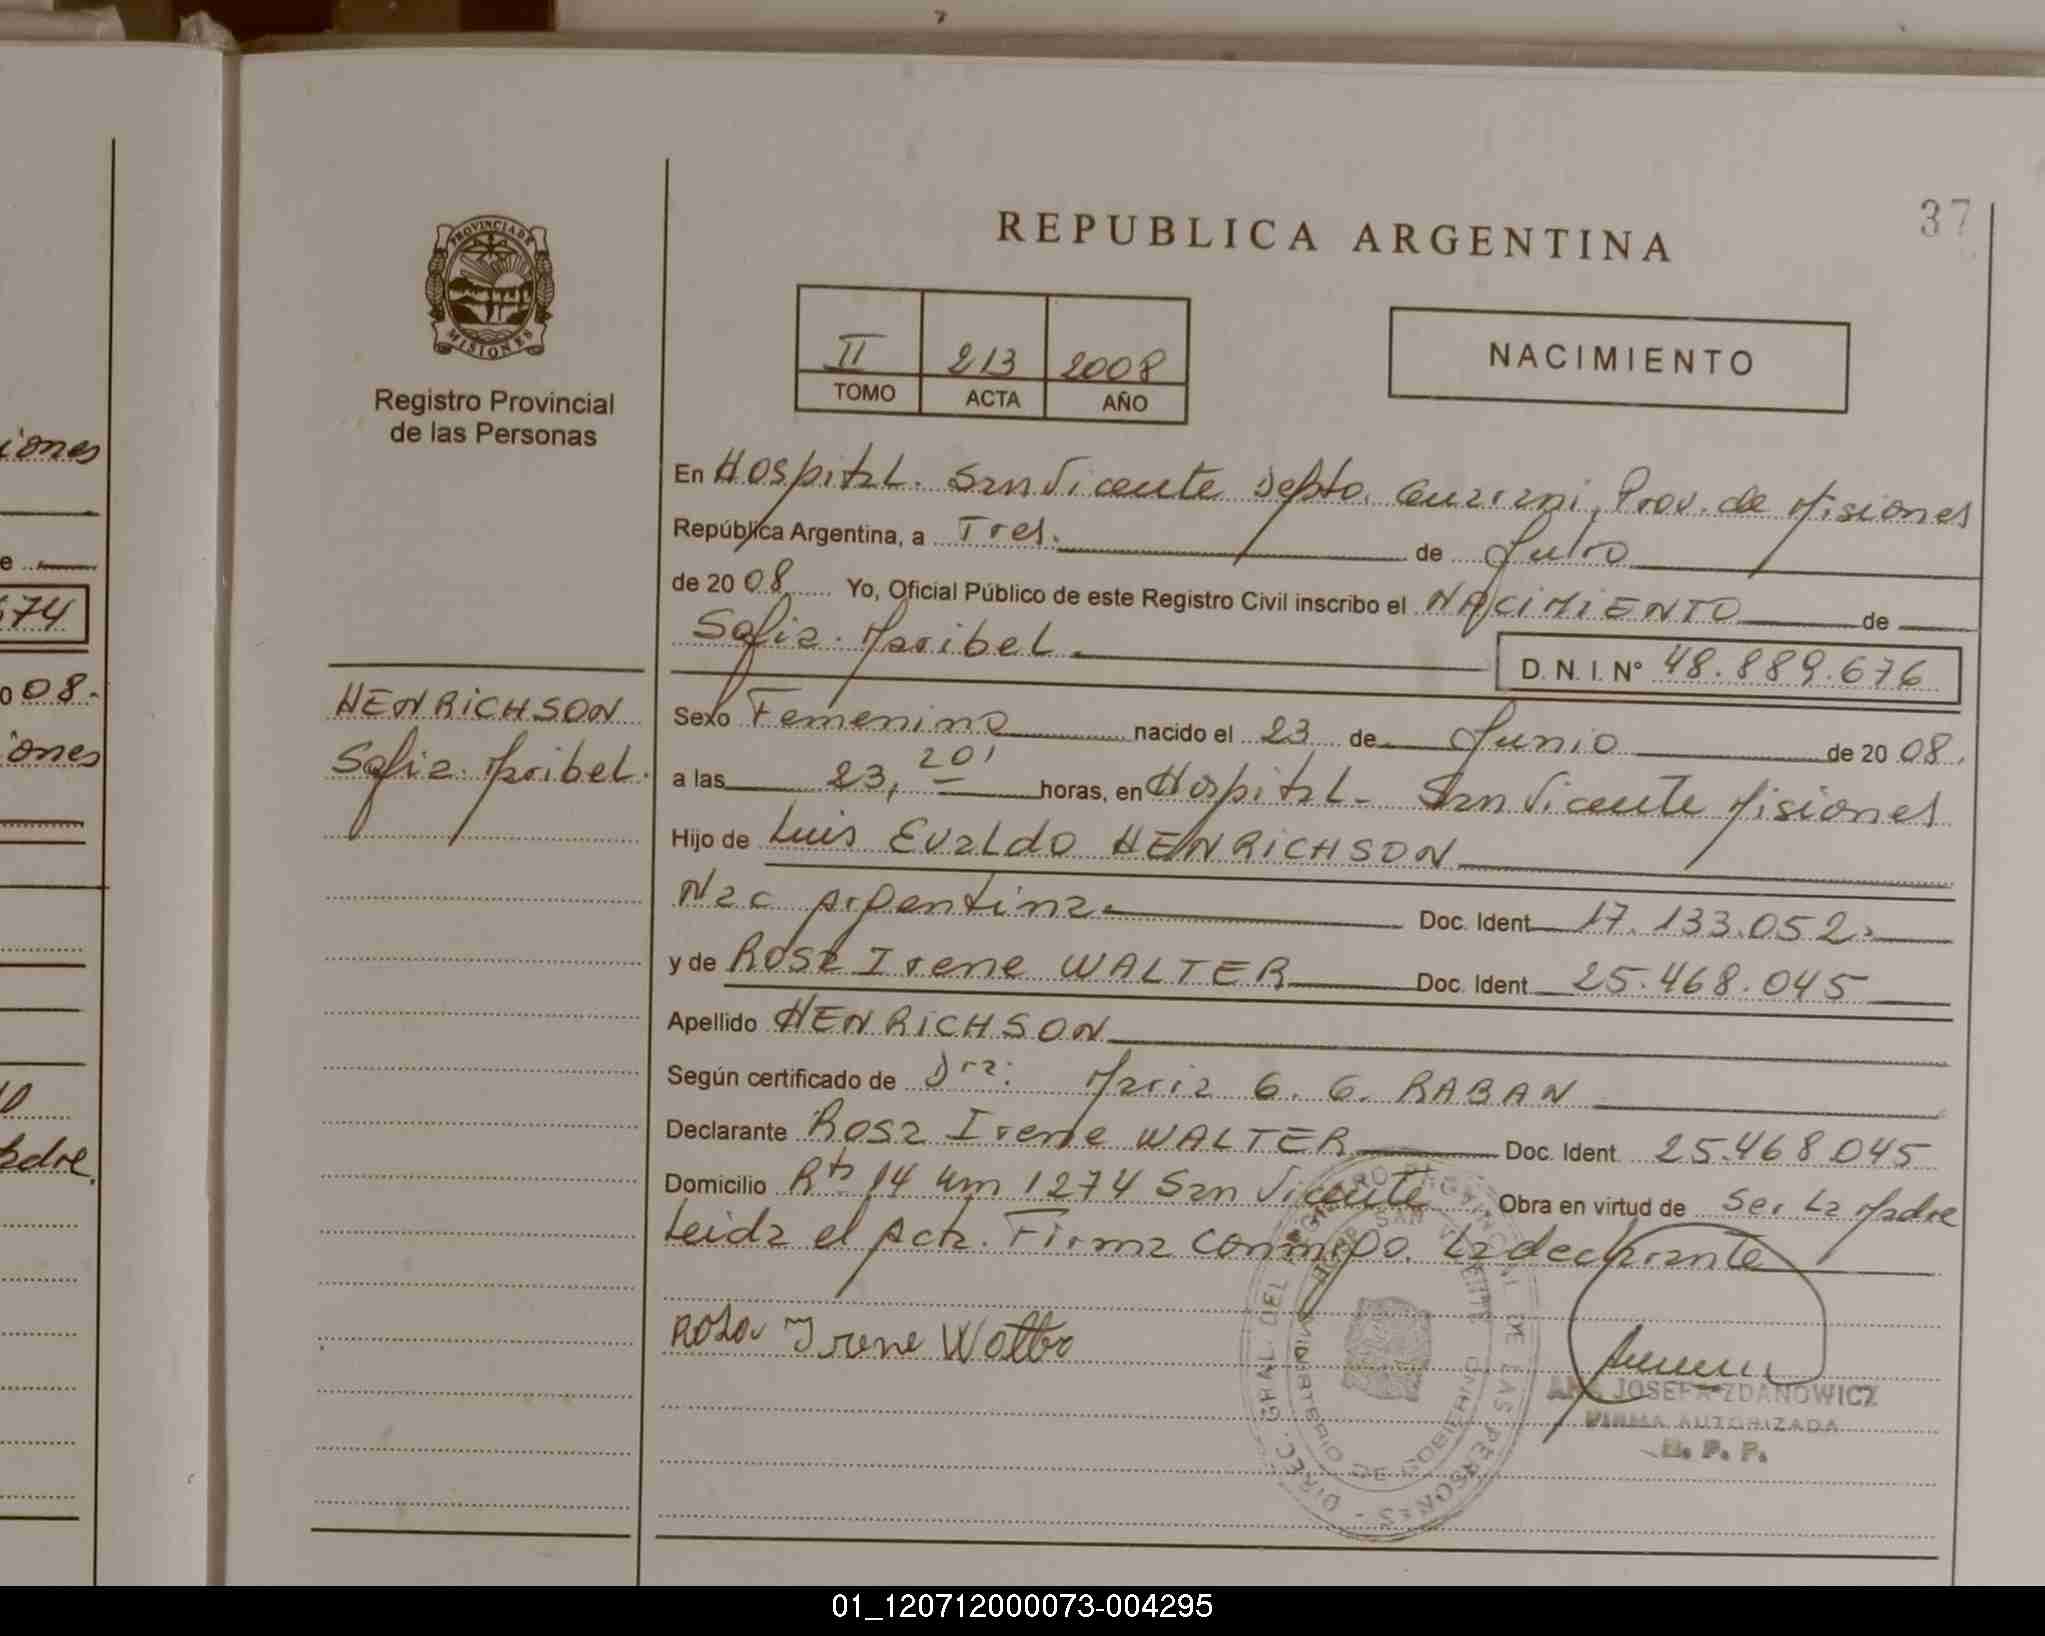 iones
e
674
o 08.-
iones
adre,
37
PROVINCIA DE
MISIONES
Registro Provincial
de las Personas
REPUBLICA ARGENTINA
II 213 2008
TOMO ACTA AÑO
NACIMIENTO
En Hospital. San Vicente Depto. Guarani, Prov. de Misiones
República Argentina, a Tres. de Julio
de 20 08 Yo, Oficial Público de este Registro Civil inscribo el NACIMIENTO de
Sofia. Maribel.
D. N. I. N° 48.889.676
HENRICHSON
Sofia. Maribel.
Sexo Femenino nacido el 23 de Junio de 20 08.
a las 23, 20' horas, en Hospital. San Vicente Misiones
Hijo de Luis Evaldo HENRICHSON
Nac Argentina. Doc. Ident. 17.133.052.
y de Rosa Irene WALTER Doc. Ident. 25.468.045
Apellido HENRICHSON
Según certificado de Dra: Maria G. G. RABAN
Declarante Rosa Irene WALTER Doc. Ident. 25.468.045
Domicilio Rta 14 Km 1274 San Vicente Obra en virtud de Ser La Madre
Leida el Acta. Firma conmigo. La declarante
Rosa Irene Walter
DIREC. GRAL. DEL REGISTRO PROVINCIAL DE LAS PERSONAS
MINISTERIO DE GOBIERNO
ANA JOSEFA ZDANOWICZ
FIRMA AUTORIZADA
R. P. P.
01_120712000073-004295